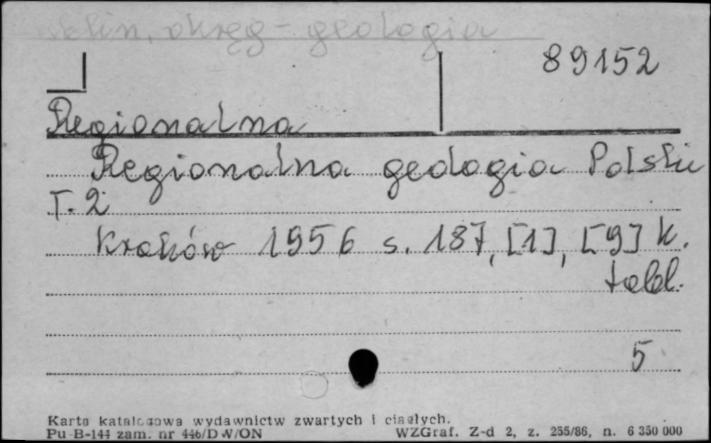 okręg - geologia
89152
Regionalna
Regionalna geologia Polski
T. 2
Kraków 1956 s. 187, [1], [9] k.
tabl.
5
Karta katalogowa wydawnictw zwartych i ciągłych.
Pu B-144 zam. nr 446/DW/ON WZGraf. Z-d 2, z. 255/86, n. 6 350 000